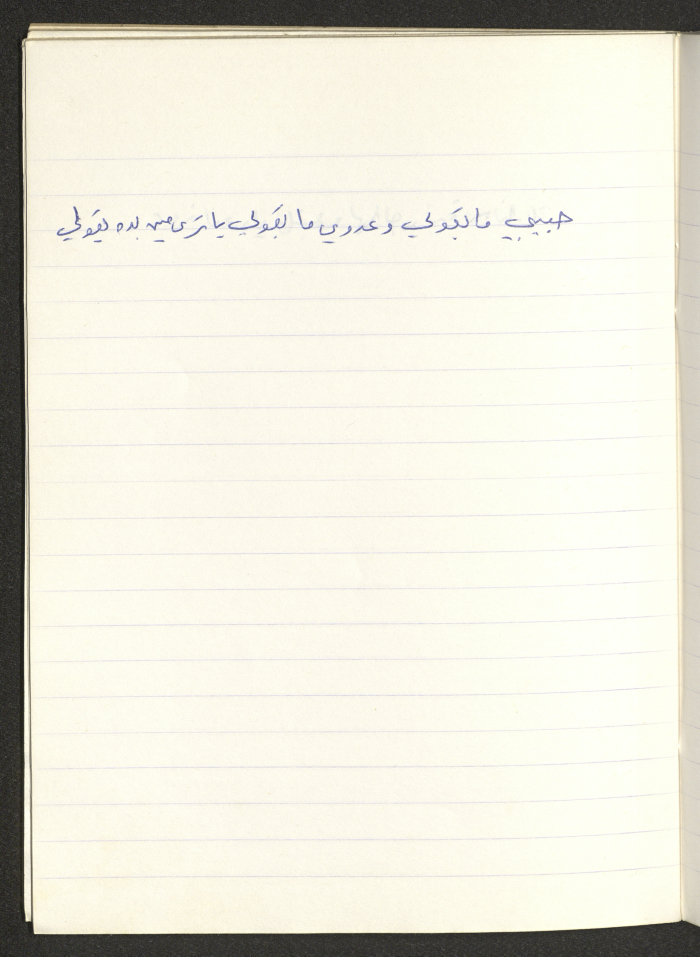 حبيبي ما بقولي وعدوي ما بقولي يا ترى مين بده يقولي